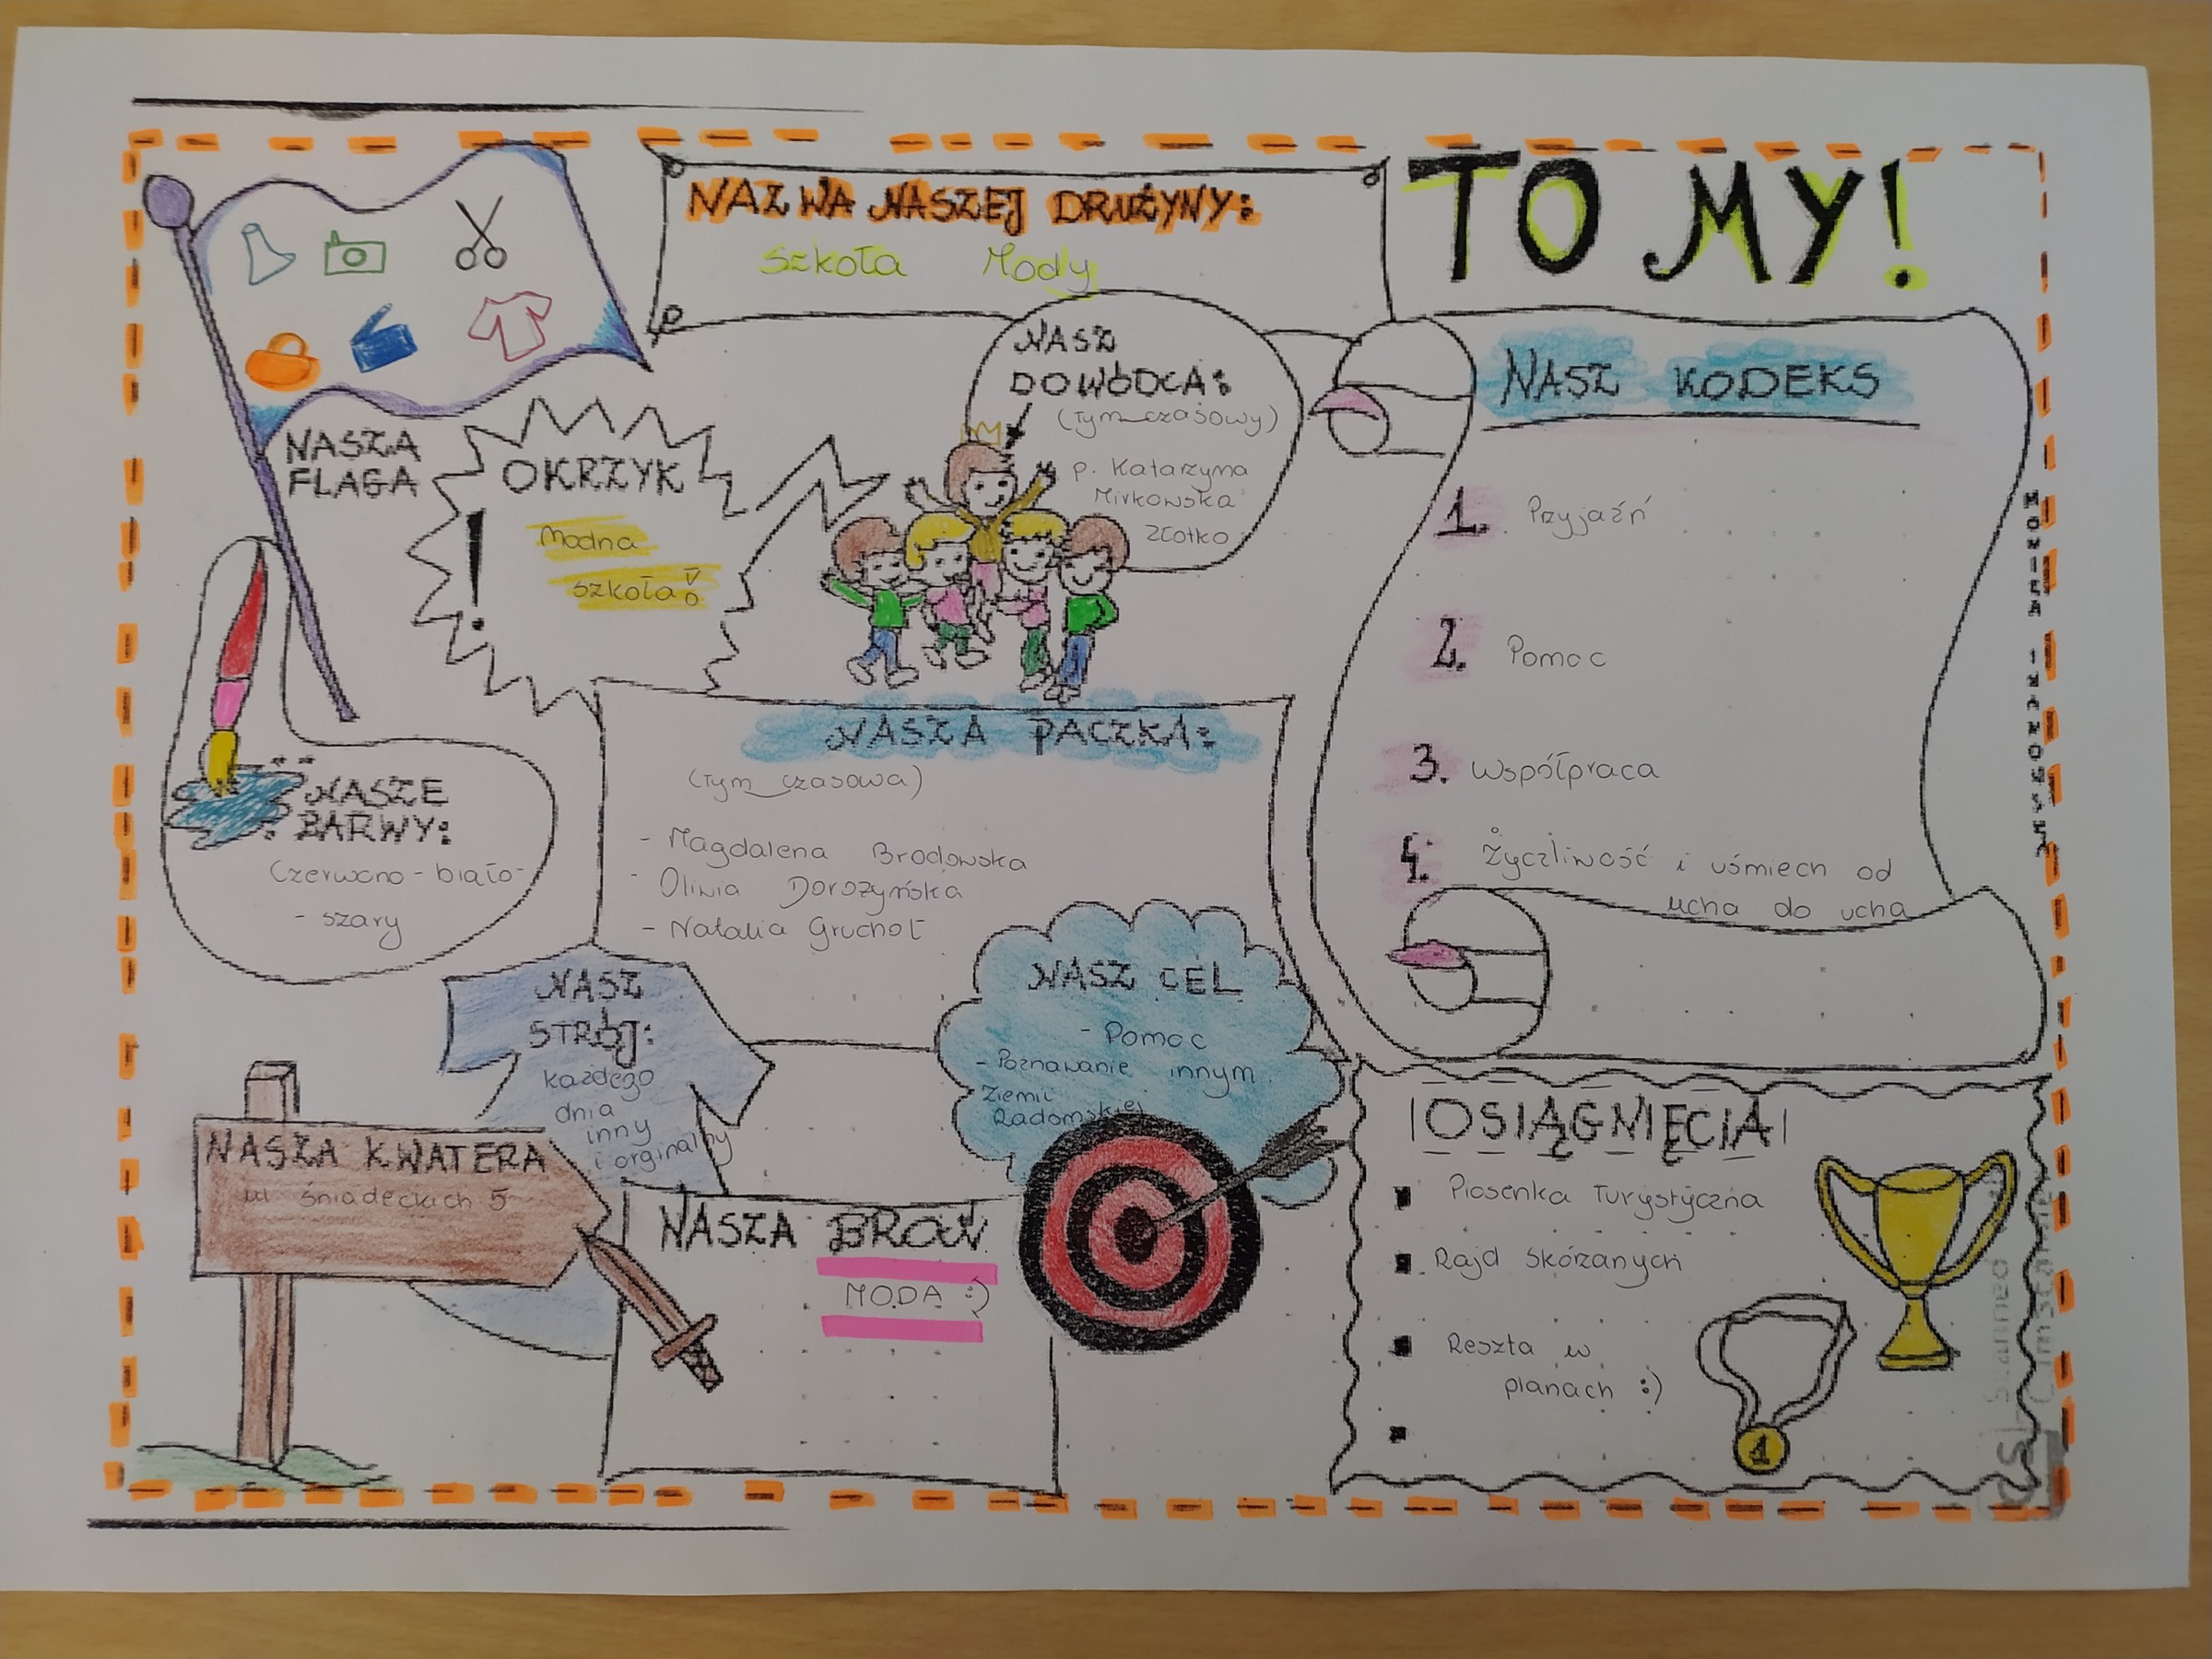 NAZWA NASZEJ DRUŻYNY:
Szkoła Mody
TO MY!
NASZA
FLAGA
OKRZYK
!
Modna
szkoła!
NASZ
DOWÓDCA:
(tymczasowy)
p. Katarzyna
Mirkowska
Złotko
NASZ KODEKS
1. Przyjaźń
2. Pomoc
3. Współpraca
4. Życzliwość i uśmiech od
ucha do ucha
NASZE
BARWY:
Czerwono-biało-
- szary
NASZA PACZKA:
(tymczasowa)
- Magdalena Brodowska
- Oliwia Dorożyńska
- Natalia Gruchoł
NASZ
STRÓJ:
każdego
dnia
inny
i orginalny
NASZ CEL
- Pomoc
- Poznawanie innym
Ziemii
Radomskiej
NASZA KWATERA
ul śniadeckich 5
NASZA BROŃ
MODA :)
OSIĄGNIĘCIA
Piosenka Turystyczna
Rajd Skórzanych
Reszta w
planach :)
1